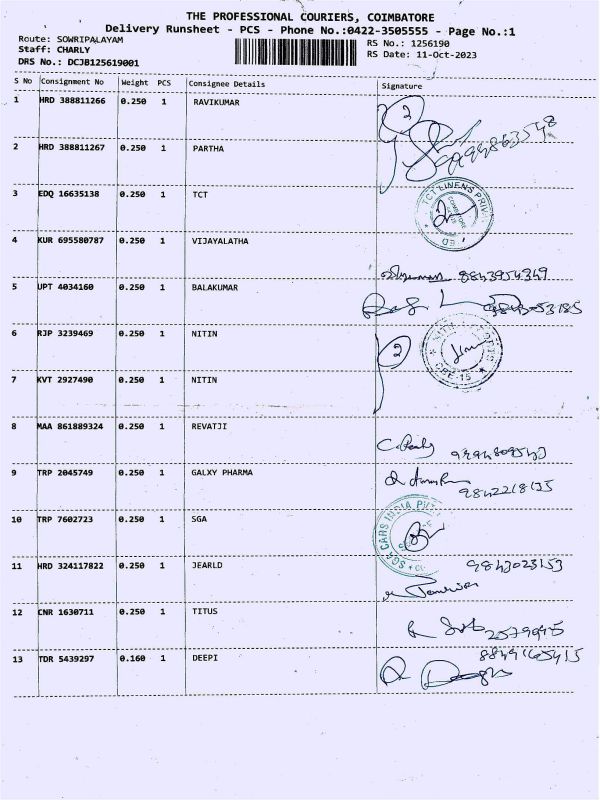 THE PROFESSIONAL COURIERS, COIMBATORE
Delivery Runsheet - PCS - Phone No.:0422-3505555 - Page No.:1
Route: SOWRIPALAYAM
RS No.: 1256190
Staff: CHARLY
RS Date: 11-Oct-2023
DRS No.: DCJB125619001
S No Consignment No Weight PCS Consignee Details Signature
1 HRD 388811266 0.250 1 RAVIKUMAR
2
2 HRD 388811267 0.250 1 PARTHA
3 EDQ 16635138 0.250 1 TCT
TCT LINENS PRIVA ED
4 KUR 695580787 0.250 1 VIJAYALATHA
8843954349
5 UPT 4034160 0.250 1 BALAKUMAR
6 RJP 3239469 0.250 1 NITIN
2
CBE-15
7 KVT 2927490 0.250 1 NITIN
8 MAA 861889324 0.250 1 REVATJI
9 TRP 2045749 0.250 1 GALXY PHARMA
10 TRP 7602723 0.250 1 SGA
SGA CARS INDIA PVT
11 HRD 324117822 0.250 1 JEARLD
9843023153
12 CNR 1630711 0.250 1 TITUS
13 TDR 5439297 0.160 1 DEEPI